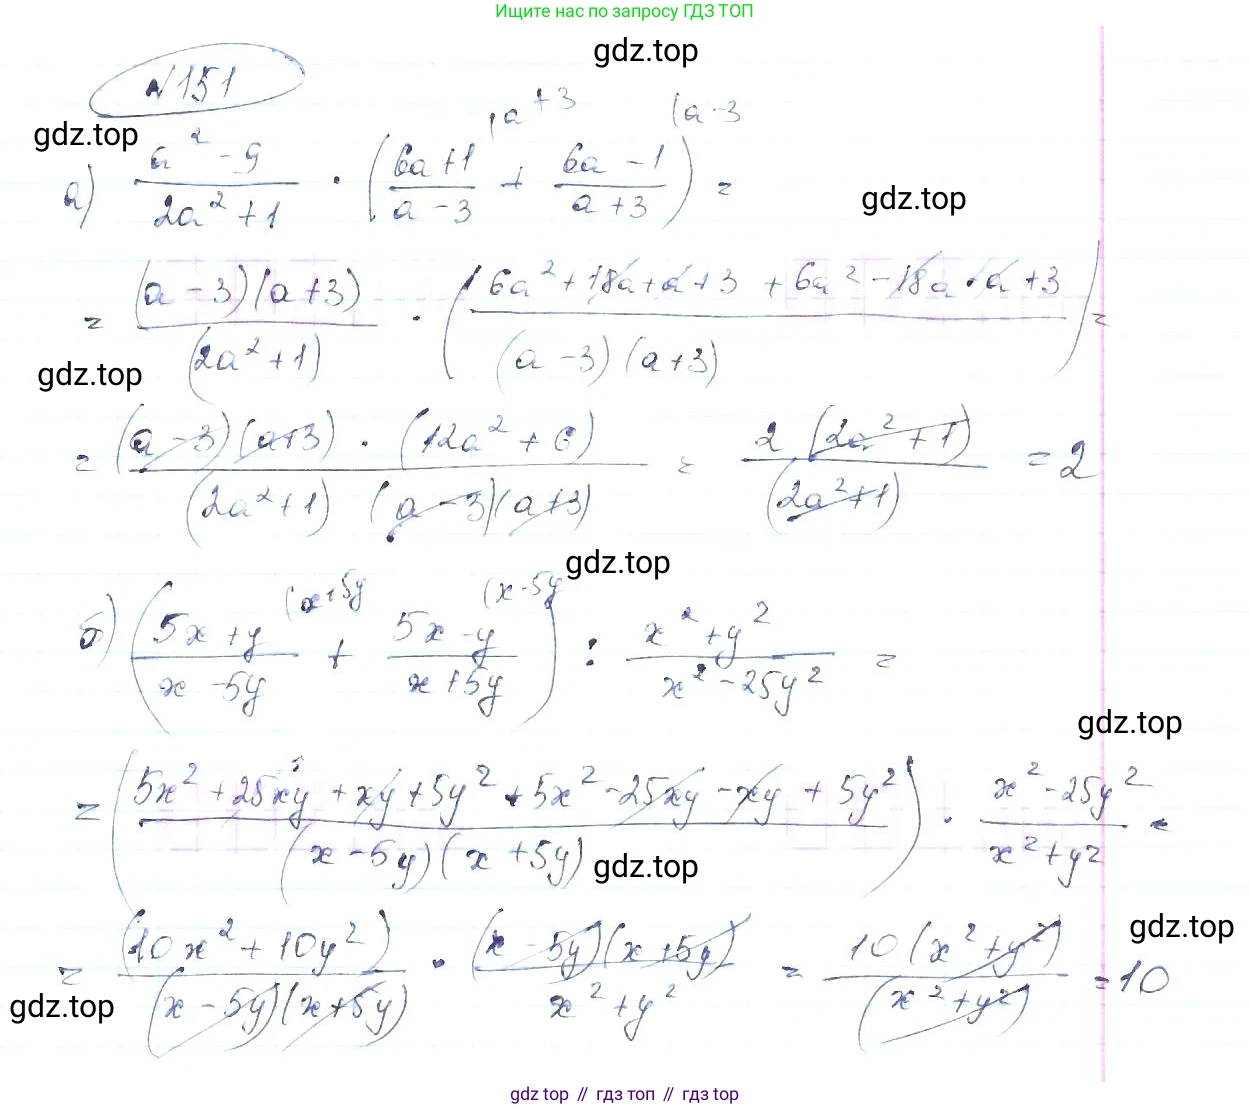 Ищите нас по запросу ГДЗ ТОП
gdz.top
№151
gdz.top
а) (a² - 9)/(2a² + 1) · ((6a+1)/(a-3) (a+3 + (6a-1)/(a+3) (a-3) =
gdz.top
= (a-3)(a+3)/(2a²+1) · ((6a²+18a+a+3+6a²-18a-a+3)/((a-3)(a+3))) =
gdz.top
= (a-3)(a+3)·(12a²+6)/((2a²+1)(a-3)(a+3)) = 2(2a²+1)/(2a²+1) = 2
gdz.top
б) ((5x+y)/(x-5y) (x+5y + (5x-y)/(x+5y) (x-5y) : (x²+y²)/(x²-25y²) =
gdz.top
= ((5x²+25xy+xy+5y²+5x²-25xy-xy+5y²)/((x-5y)(x+5y))) · (x²-25y²)/(x²+y²) =
gdz.top
gdz.top
= (10x²+10y²)/((x-5y)(x+5y)) · (x-5y)(x+5y)/(x²+y²) = 10(x²+y²)/(x²+y²) = 10
gdz.top
gdz top // гдз топ // gdz top